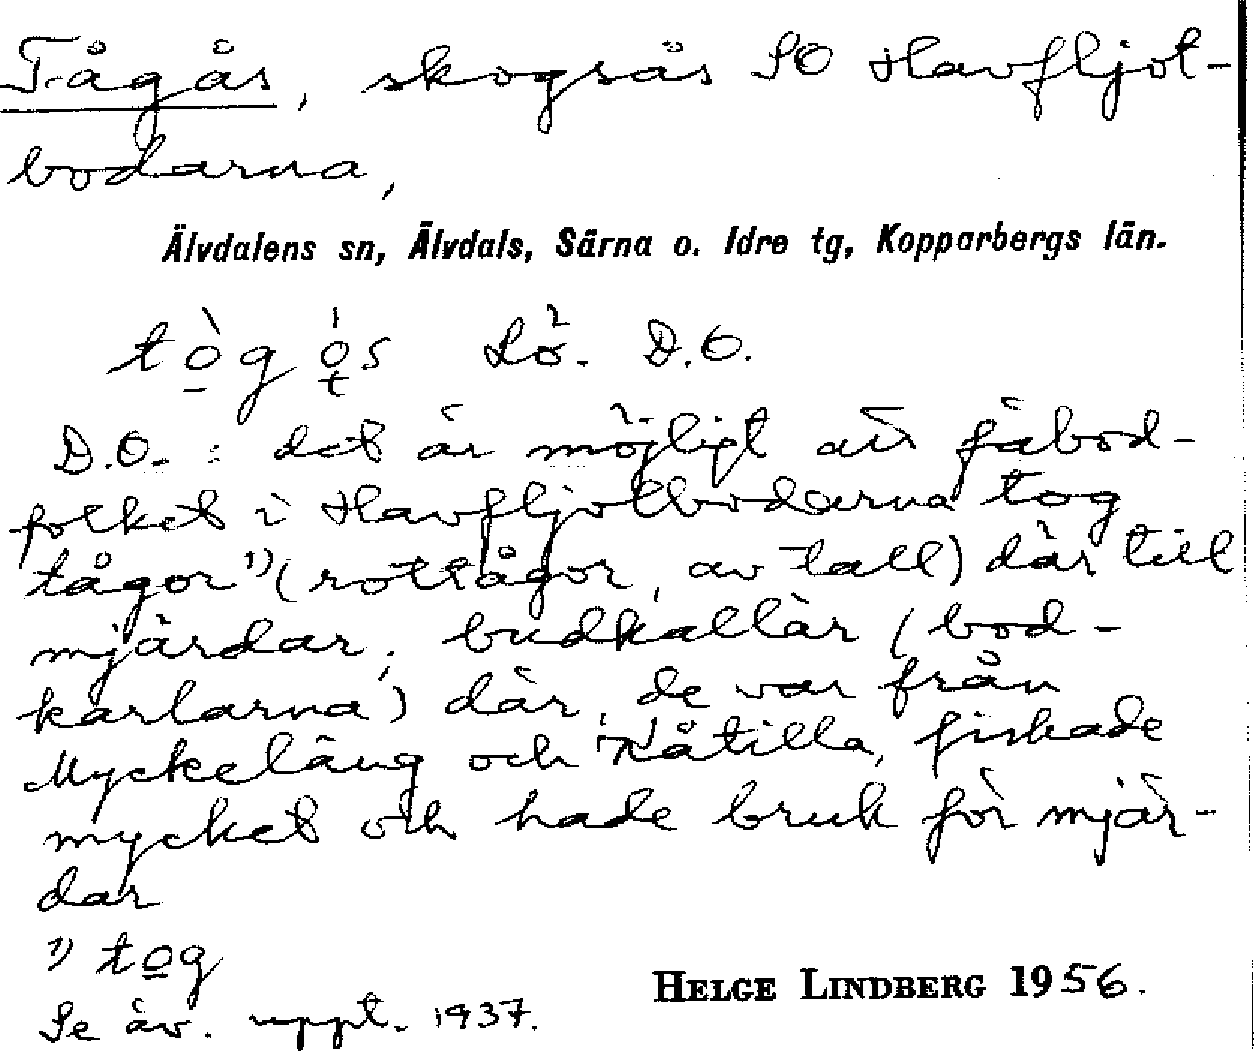 Tågås, skogsås SO Havfljot-
bodarna,
Älvdalens sn, Älvdals, Särna o. Idre tg, Kopparbergs län.
tò̱g ó̱s Lö. D.O.
D.O. : det är möjligt att fäbod-
folket i Havfljotbodarna tog
tågor¹⁾ (rottågor, av tall) där till
mjärdar; budkallär (bod-
karlarna) där, de var från
Myckeläng och Kåtilla, fiskade
mycket och hade bruk för mjär-
dar
¹⁾ to̱g
Se äv. uppt. 1937.
HELGE LINDBERG 1956.